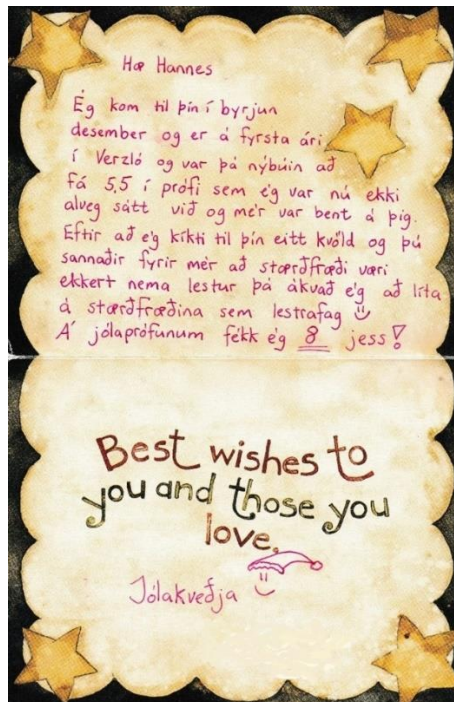 Hæ Hannes
Ég kom til þín í byrjun
desember og er á fyrsta ári
í Verzló og var þá nýbúin að
fá 5,5 í prófi sem ég var nú ekki
alveg sátt við og mér var bent á þig.
Eftir að ég kíkti til þín eitt kvöld og þú
sannaðir fyrir mér að stærðfræði væri
ekkert nema lestur þá ákvað ég að líta
á stærðfræðina sem lestrafag
Á jólaprófunum fékk ég 8 jess!
Best wishes to
you and those you
love.
Jólakveðja